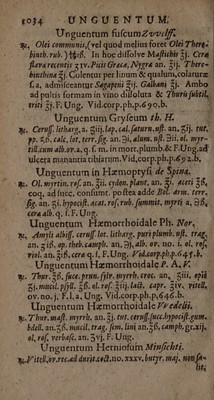 1034 UNGUENTUM.
Unguentum fuscum Zvvelff.
℞. Olei communis, (vel quod melius foret Olei There-
binth. rub.) ℥℥iß. In hoc dissolve Mastichis ℥j. Ceræ
flava recentis ℥iv. Picis Græca, Nygra an. ℥ij. There-
binthina ℥j. Colentur per linum & qualum, colaturæ
f. a. admisceantur Sagapeni ℥ij. Galbani ℥j. Ambo
ad pultis formam in vino dissoluta & Thuris subtil.
triti ℥j. F. Ung. Vid. corp. ph. p. 690. b.
Unguentum Gryseum th. H.
℞. Ceruss. litharg. a. ℥iij. lap. cal.
in mort. plumb. & F. Ung. ad
ulcera manantia tibiarum. Vid. corp. ph. p. 692. b.
Unguentum in Hæmoptysi de Spina.
℞. Ol. myrtin. ros. an. ℥ij. cydon. plant. an. ℥j. aceti ℥ß.
coq. ad succ. consumt. postea adde Bol. arm. terr.
sig. an. ℥j. hypocist. acat. ros. rub. summit. myrti a. ℥iß,
cera alb. q. s. F. Ung.
Unguentum Hæmorrhoidale Ph. Nor.
℞. Amyli abiss. ceruss. lot. litharg. puri plumb. ust. trag.
an. ℥iß. op. theb. camph. an. ʒj. alb. ov. no. i. ol. ros.
viol. an. ℥iß. cera q. s. F. Ung. Vid. corp. ph. p. 645. b.
Unguentum Hæmorrhoidale P. A. V.
℞. Thur. ʒß. succ. prun. silv. myrrh. croc. an. ʒiij. opii
ʒj. mucil. psyll. ℥ß. ol. ros. ℥iij. lact. capr. ℥iv. vitell,
ov. no. j. F. l. a. Ung. Vid. corp. ph. p. 646. b.
Unguentum Hæmorrhoidale Vvedelii.
℞. Thur. mast. myrrh. an. ʒj. tut. ceruss. succ. hypocist. gum.
bdell. an. ℥ß. mucil. trag. sem. lini an. ℥ß. camph. gr. xij.
ol. ros. verbasc. an. ʒvj. F. Ung.
Unguentum Herniosum Minsichti.
℞. Vitell. ov. rec. ad durit. coct. no. xxxv. butyr. maj. non sa-
lit.